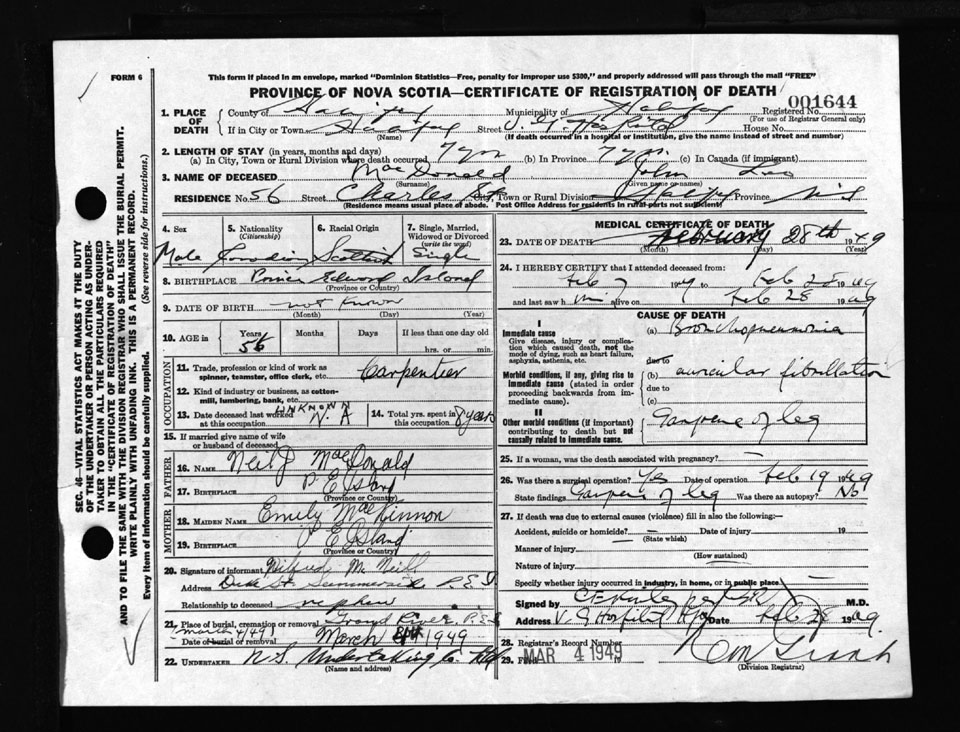 FORM 6
This form if placed in an envelope, marked "Dominion Statistics—Free, penalty for improper use $300," and properly addressed will pass through the mail "FREE"
PROVINCE OF NOVA SCOTIA—CERTIFICATE OF REGISTRATION OF DEATH
001644
1. PLACE OF DEATH County of Halifax Municipality of Halifax Registered No.
(For use of Registrar General only)
If in City or Town Halifax Street House No.
(Name) (If death occurred in a hospital or institution, give the name instead of street and number)
2. LENGTH OF STAY (in years, months and days)
(a) In City, Town or Rural Division where death occurred 7 yrs (b) In Province 7 yrs. (c) In Canada (if immigrant)
3. NAME OF DECEASED MacDonald John Leo
(Surname) (Given name or names)
RESIDENCE No. 56 Street Charles St City, Town or Rural Division Province N.S
(Residence means usual place of abode. Post Office Address for residents in rural parts not sufficient)
4. Sex 5. Nationality (Citizenship) 6. Racial Origin 7. Single, Married, Widowed or Divorced (write the word)
Male Canadian Scottish Single
8. BIRTHPLACE Prince Edward Island
(Province or Country)
9. DATE OF BIRTH not known
(Month) (Day) (Year)
10. AGE in Years Months Days If less than one day old
56 hrs. or min.
OCCUPATION
11. Trade, profession or kind of work as spinner, teamster, office clerk, etc. Carpenter
12. Kind of industry or business, as cotten-mill, lumbering, bank, etc.
13. Date deceased last worked at this occupation UNKNOWN N.A 14. Total yrs. spent in this occupation 8 years
15. If married give name of wife or husband of deceased
FATHER
16. NAME Neil J MacDonald
17. BIRTHPLACE P. E Island
(Province or Country)
MOTHER
18. MAIDEN NAME Emily MacKinnon
19. BIRTHPLACE P E Island
(Province or Country)
20. Signature of informant Wilfred McNeill
Address Duke St Summerside P.E.I
Relationship to deceased nephew
21. Place of burial, cremation or removal Grand River P.E.I
March 4/49
Date of burial or removal March 1949
22. UNDERTAKER N.S. Undertaking Co Hfx
(Name and address)
MEDICAL CERTIFICATE OF DEATH
23. DATE OF DEATH February 28th 1949
(Month) (Day) (Year)
24. I HEREBY CERTIFY that I attended deceased from:
Feb 7 1949 to Feb 28 1949
and last saw him alive on Feb 28 1949
CAUSE OF DEATH
I
Immediate cause
Give disease, injury or complication which caused death, not the mode of dying, such as heart failure, asphyxia, asthenia, etc.
(a) Bronchopneumonia
due to
Morbid conditions, if any, giving rise to immediate cause (stated in order proceeding backwards from immediate cause).
(b) auricular fibrillation
due to
(c)
II
Other morbid conditions (if important) contributing to death but not causally related to immediate cause.
Gangrene of leg
25. If a woman, was the death associated with pregnancy? —
26. Was there a surgical operation? Yes Date of operation Feb 19 1949
State findings Gangrene of leg Was there an autopsy? No
27. If death was due to external causes (violence) fill in also the following:—
Accident, suicide or homicide? — Date of injury 19
(State which)
Manner of injury
(How sustained)
Nature of injury
Specify whether injury occurred in industry, in home, or in public place
Signed by M.D.
Address V. G Hospital Hfx Date Feb 28 1949.
28. Registrar's Record Number
29. Filed MAR 4 1949
(Division Registrar)
SEC. 46—VITAL STATISTICS ACT MAKES IT THE DUTY
OF THE UNDERTAKER OR PERSON ACTING AS UNDER-
TAKER TO OBTAIN ALL THE PARTICULARS REQUIRED
IN THE "CERTIFICATE OF REGISTRATION OF DEATH"
AND TO FILE THE SAME WITH THE DIVISION REGISTRAR WHO SHALL ISSUE THE BURIAL PERMIT.
WRITE PLAINLY WITH UNFADING INK. THIS IS A PERMANENT RECORD.
Every item of information should be carefully supplied. (See reverse side for instructions.)